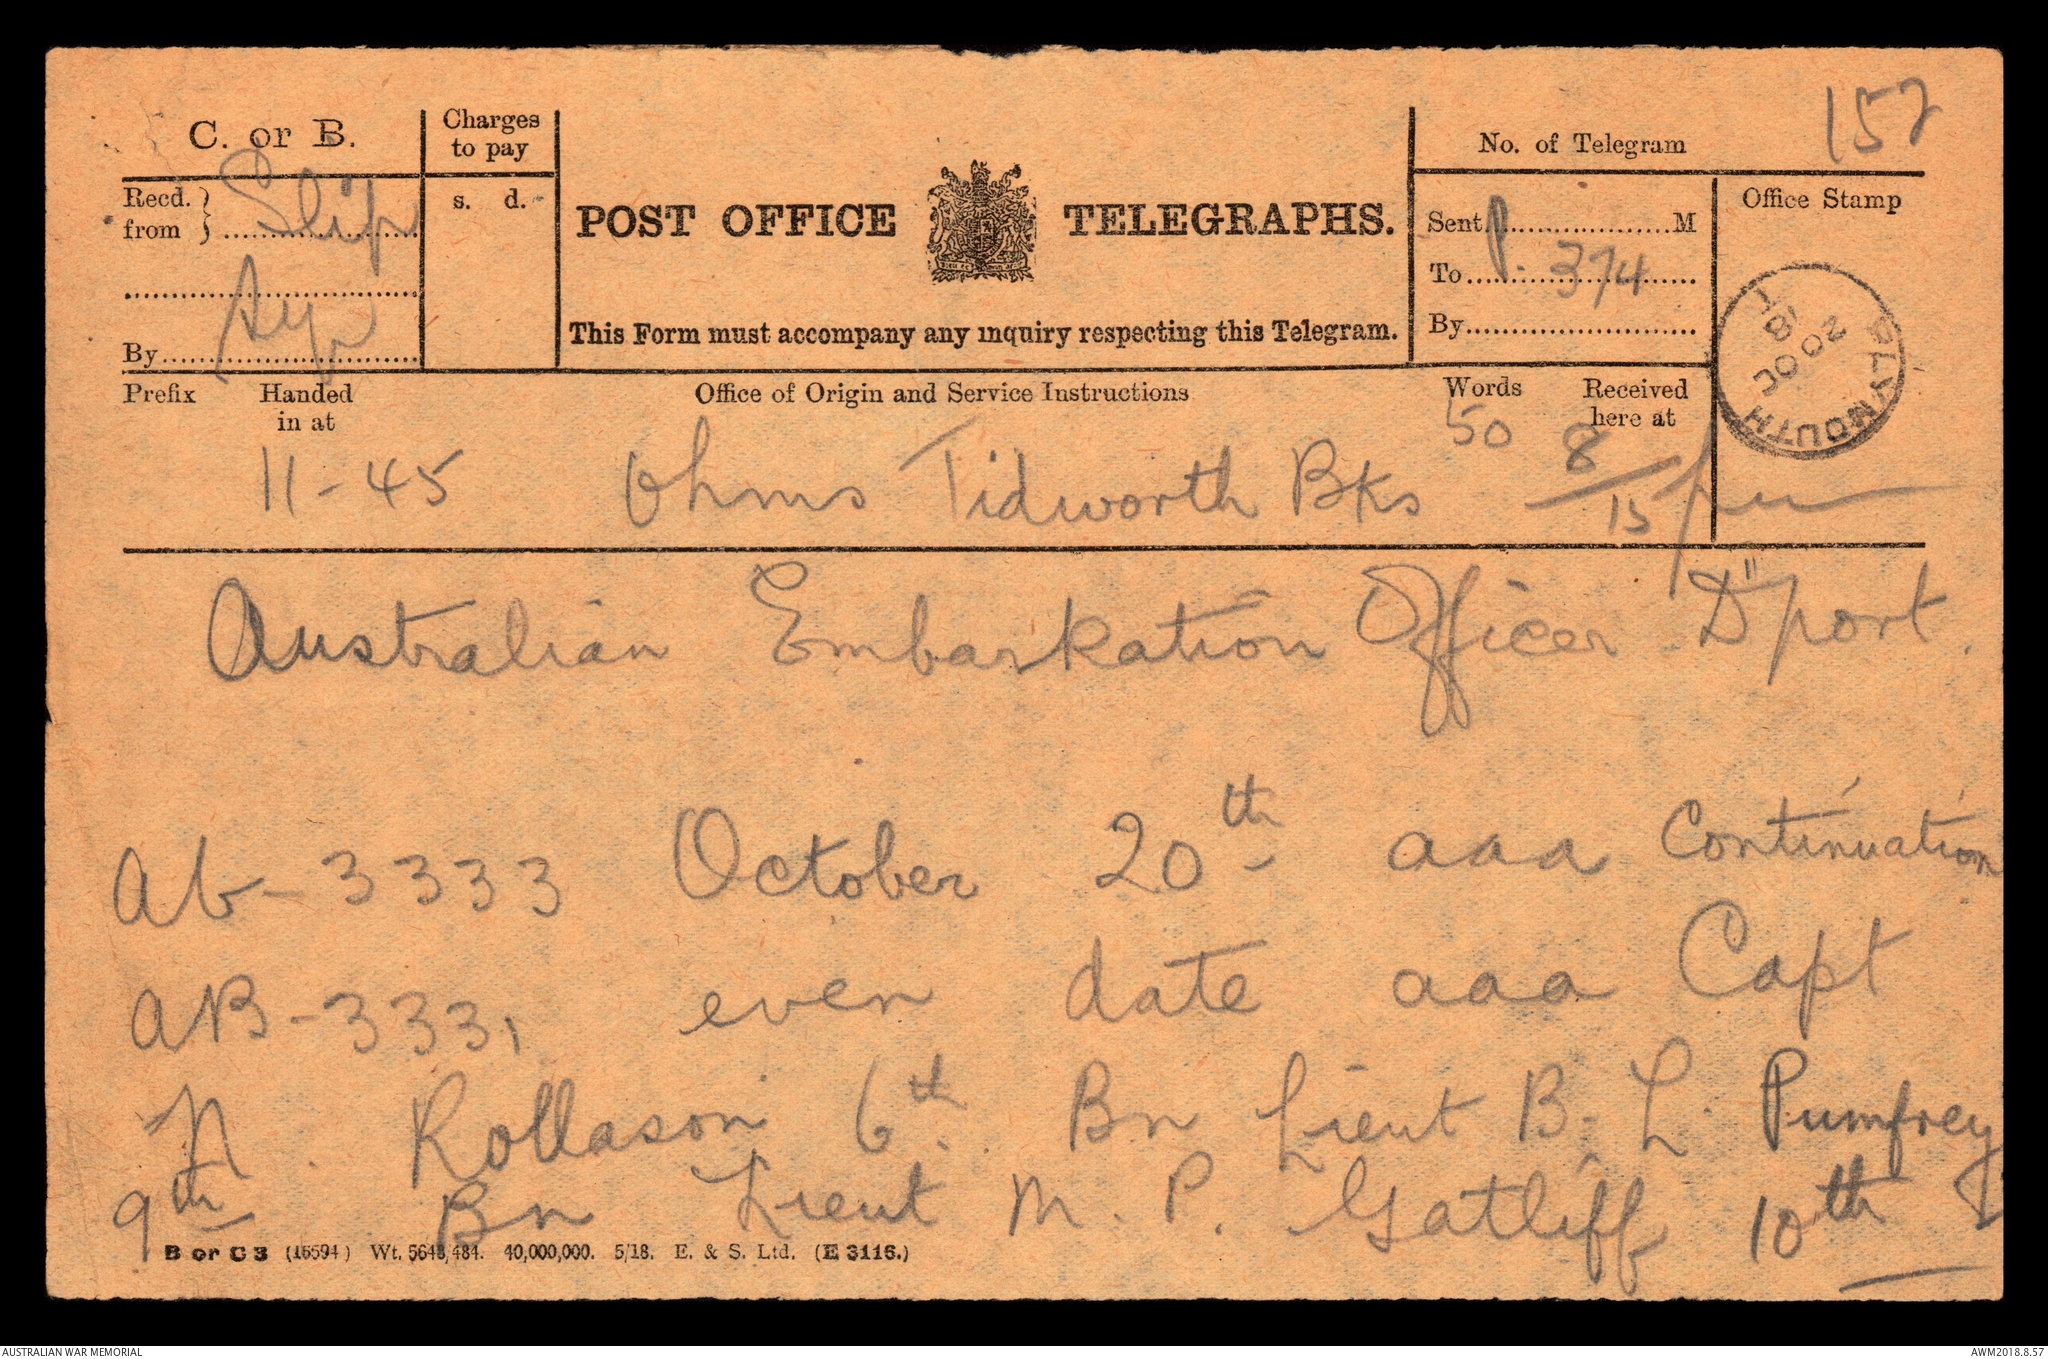 C. or B.
Charges
to pay
No. of Telegram
157
Recd.
from
Slip
s. d.
POST OFFICE TELEGRAPHS.
Sent P. M
To 374
By
Office Stamp
PLYMOUTH
20 OC
18
By
This Form must accompany any inquiry respecting this Telegram.
Prefix Handed
in at
Office of Origin and Service Instructions
Words
Received
here at
11-45 Ohms Tidworth Bks 50 8/15 pm
Australian Embarkation Officer D"port.
Ab-3333 October 20th aaa Continuation
AB-3331 even date aaa Capt
N. Rollason 6th Bn Lieut B. L. Pumfrey
9th Bn Lieut M. P. Gatliff 10th
B or C 3 (16594) Wt. 5648/484. 40,000,000. 5/18. E. & S. Ltd. (E 3116.)
AUSTRALIAN WAR MEMORIAL
AWM2018.8.57